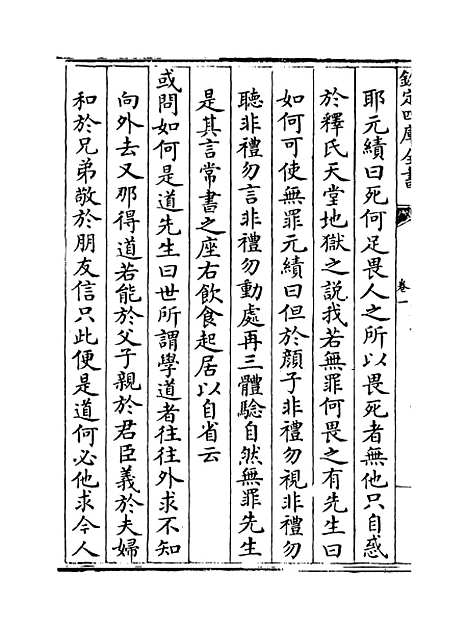 欽定四庫全書
卷一
耶元績曰死何足畏人之所以畏死者無他只自惑
於釋氏天堂地獄之說我若無罪何畏之有先生曰
如何可使無罪元績曰但於顔子非禮勿視非禮勿
聽非禮勿言非禮勿動處再三體驗自然無罪先生
是其言常書之座右飲食起居以自省云
或問如何是道先生曰世所謂學道者往往外求不知
向外去又那得道若能於父子親於君臣義於夫婦
和於兄弟敬於朋友信只此便是道何必他求今人